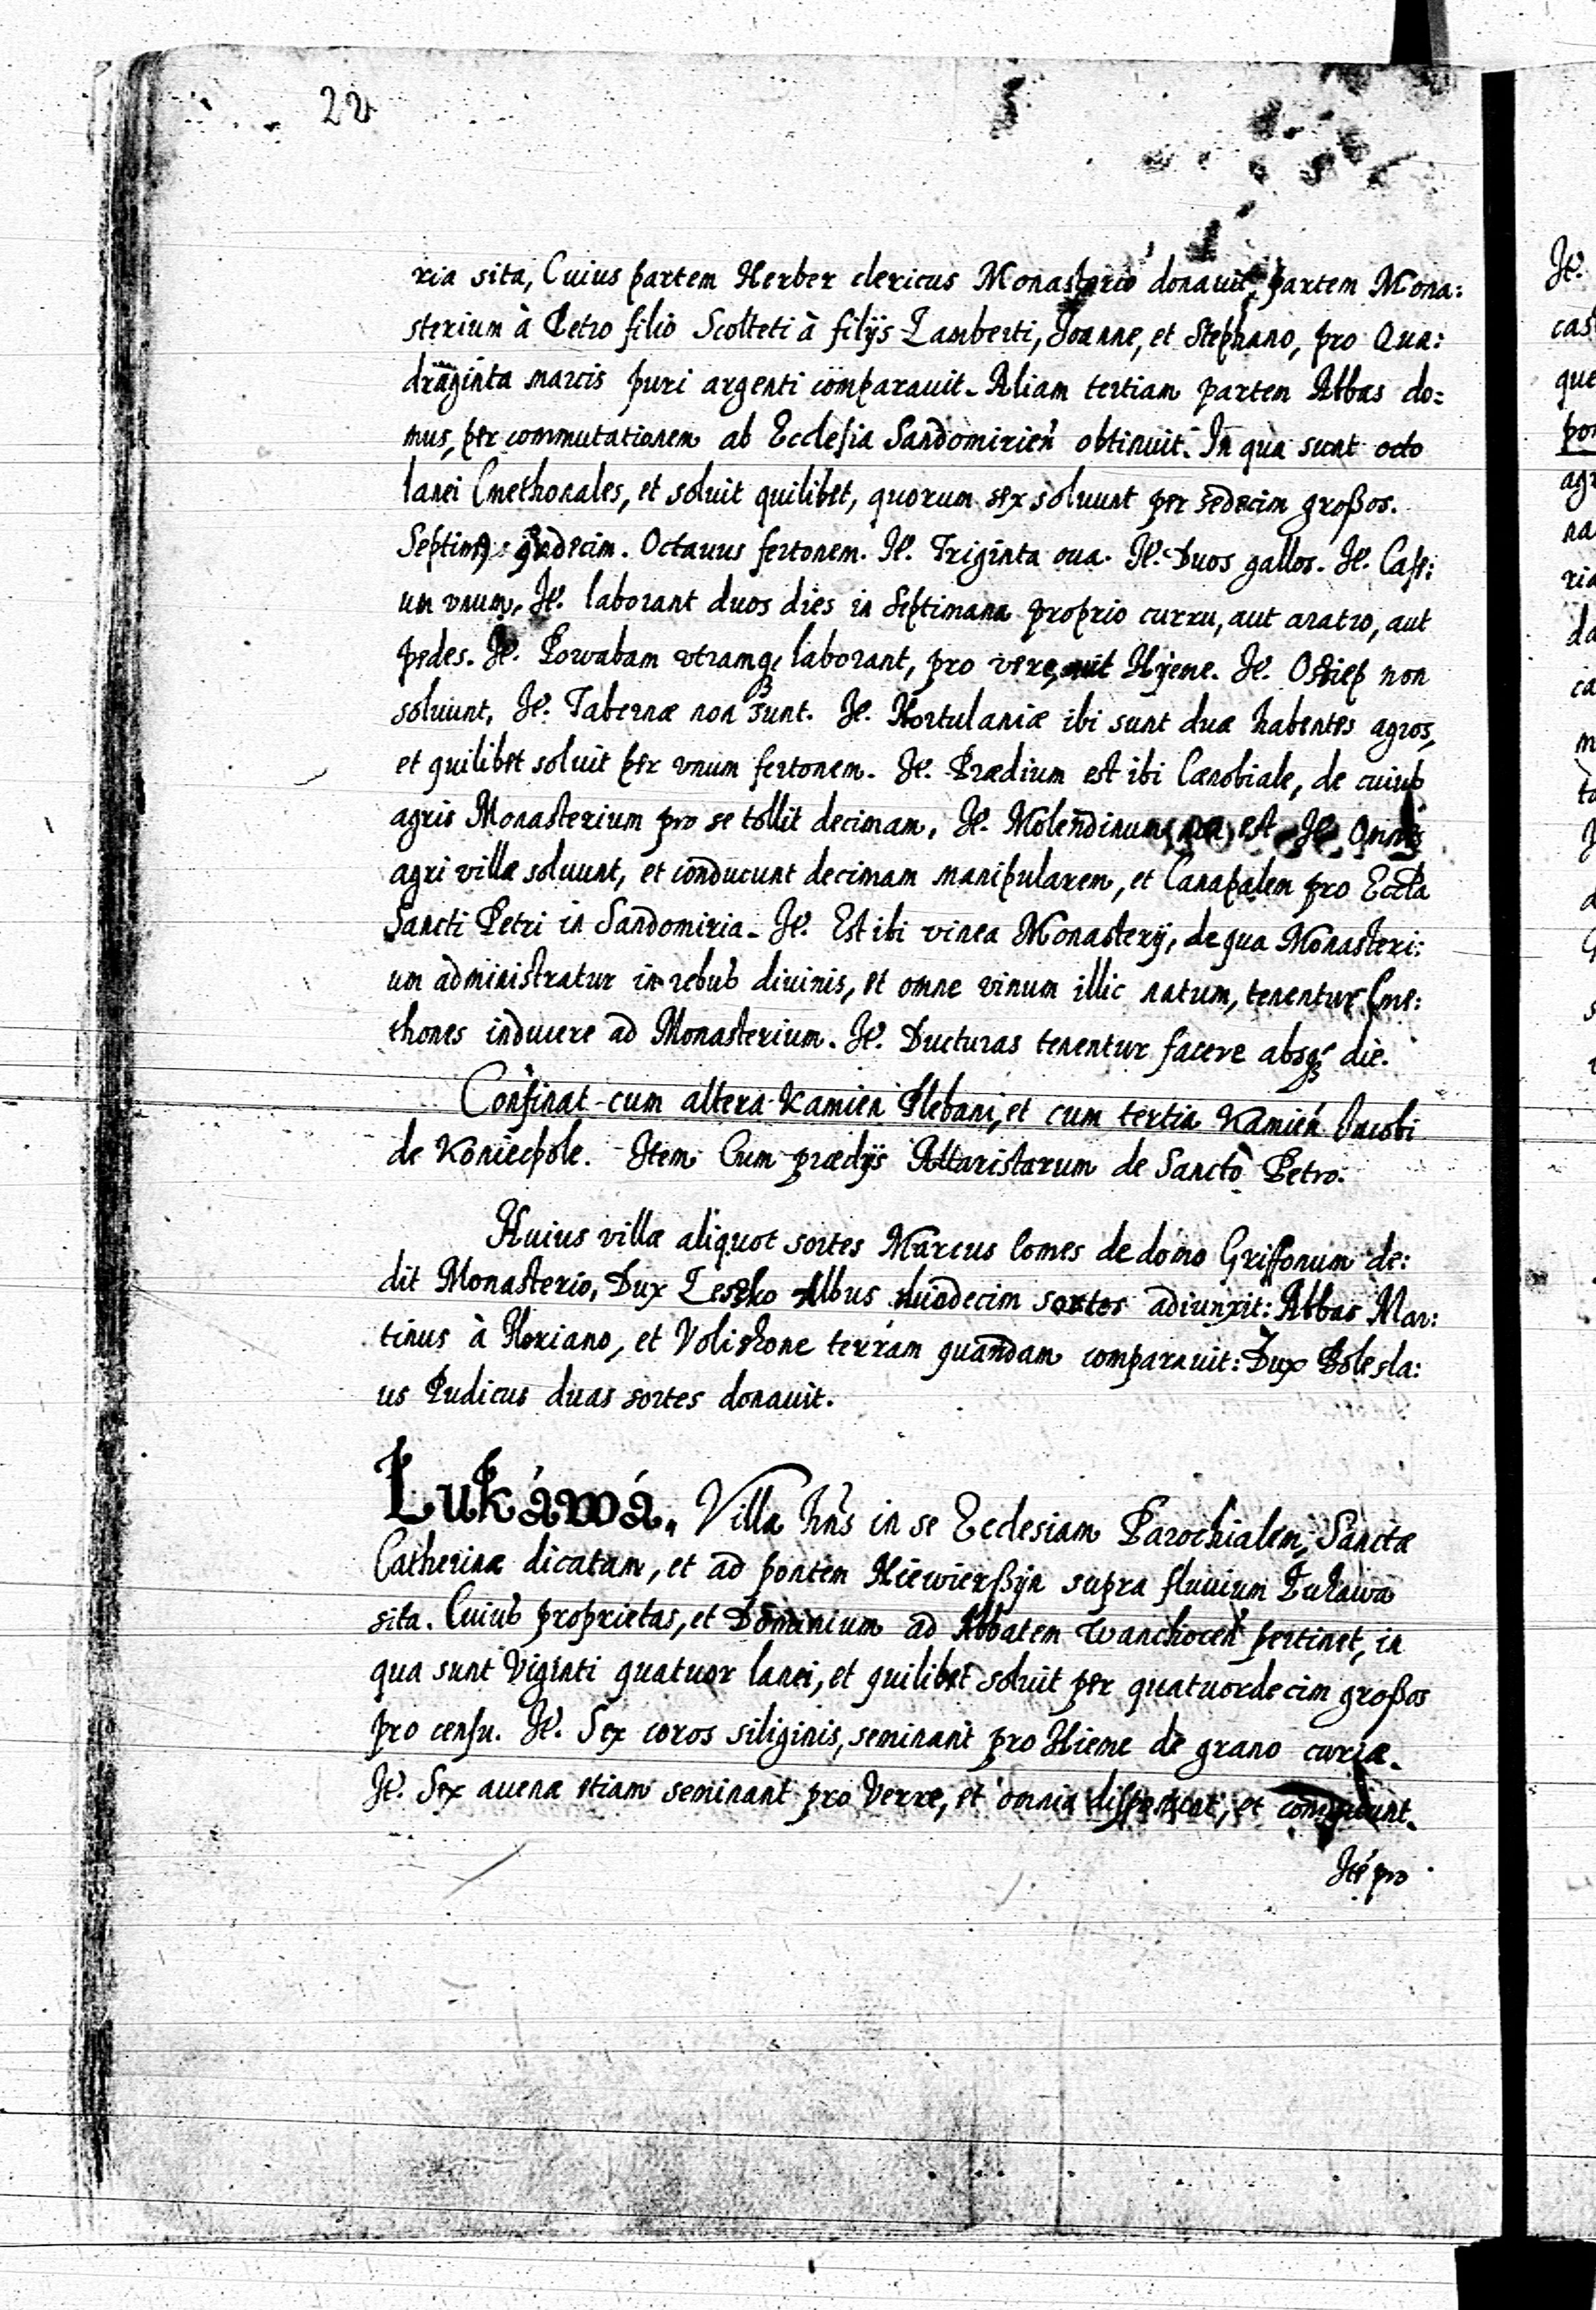 22
ria sita, Cuius partem Herber clericus Monasterio donauit, partem Mona:
sterium à Petro filio Scolteti à filijs Lamberti, Joanne, et Stephano, pro Qua:
draginta marcis puri argenti comparauit. Aliam tertiam partem Abbas do:
mus, per commutationem ab Ecclesia Sandomirień obtinuit. In qua sunt octo
lanei Cmethonales, et soluit quilibet, quorum sex soluunt per sedecim großos.
Septimꝰ Octauus fertonem. Jt. Triginta oua. Jt. Duos gallos. Jt. Case:
um vnum. Jt. laborant duos dies in Septimana proprio curru, aut aratro, aut
pedes. Jt. Powabam vtramq, laborant, pro vere, Hyeme. Jt. Osziep non
soluunt, Jt. Tabernæ non sunt. Jt. Hortulaniæ ibi sunt duæ habentes agros,
et quilibet soluit per vnum fertonem. Jt. Prædium est ibi Cœnobiale, de cuius
agris Monasterium pro se tollit decimam, Jt. Molendinum non est Jt. Omnes
agri villæ soluunt, et conducunt decimam manipularem, et Canapalem pro Eccla
Sancti Petri in Sandomiria. Jt. Est ibi vinea Monasterij, de qua Monasteri:
um administratur in rebus diuinis, et omne vinum illic natum, tenentur Cme:
thones inducere ad Monasterium. Jt. Ducturas tenentur facere absqꝫ die.
Confinat cum altera Kamień Plebani, et cum tertia Kamień Jacobi
de Koniecpole. Jtem Cum prædijs Altaristarum de Sancto Petro.
Huius villæ aliquot sortes Marcus Comes de domo Griffonum de:
dit Monasterio, Dux Leszko Albus duodecim sortes adiunxit: Abbas Mar:
tinus à Floriano, et terram quandam comparauit: Dux Bolesla:
us Pudicus duas sortes donauit.
Łukáwá. Villa hńs in se Ecclesiam Parochialem, Sanctæ
Catherinæ dicatam, et ad pontem supra fluuium Łukawa
sita. Cuius proprietas, et Dominium ad Abbatem Wanchoceń pertinet, in
qua sunt Viginti quatuor lanei, et quilibet soluit per quatuordecim großos
pro censu. Jt. Sex coros siliginis, seminant pro Hieme de grano curiæ.
Jt. Sex auenæ etiam seminant pro Verre, et omnia et conducunt.
Jté pro